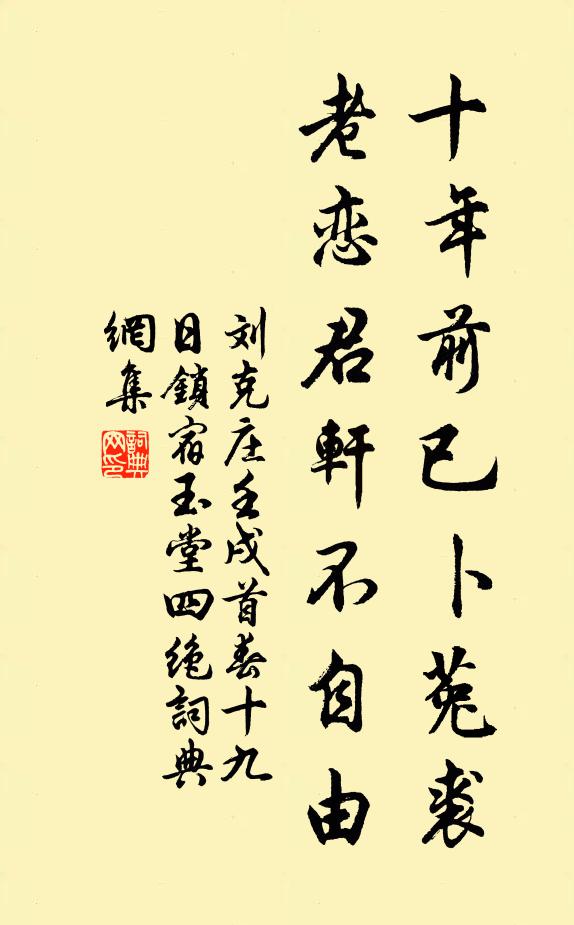 十年前已卜菟裘
老恋君軒不自由
刘克庄壬戌首春十九
日鎖宿玉堂四绝詞典
網集
詞典
网印